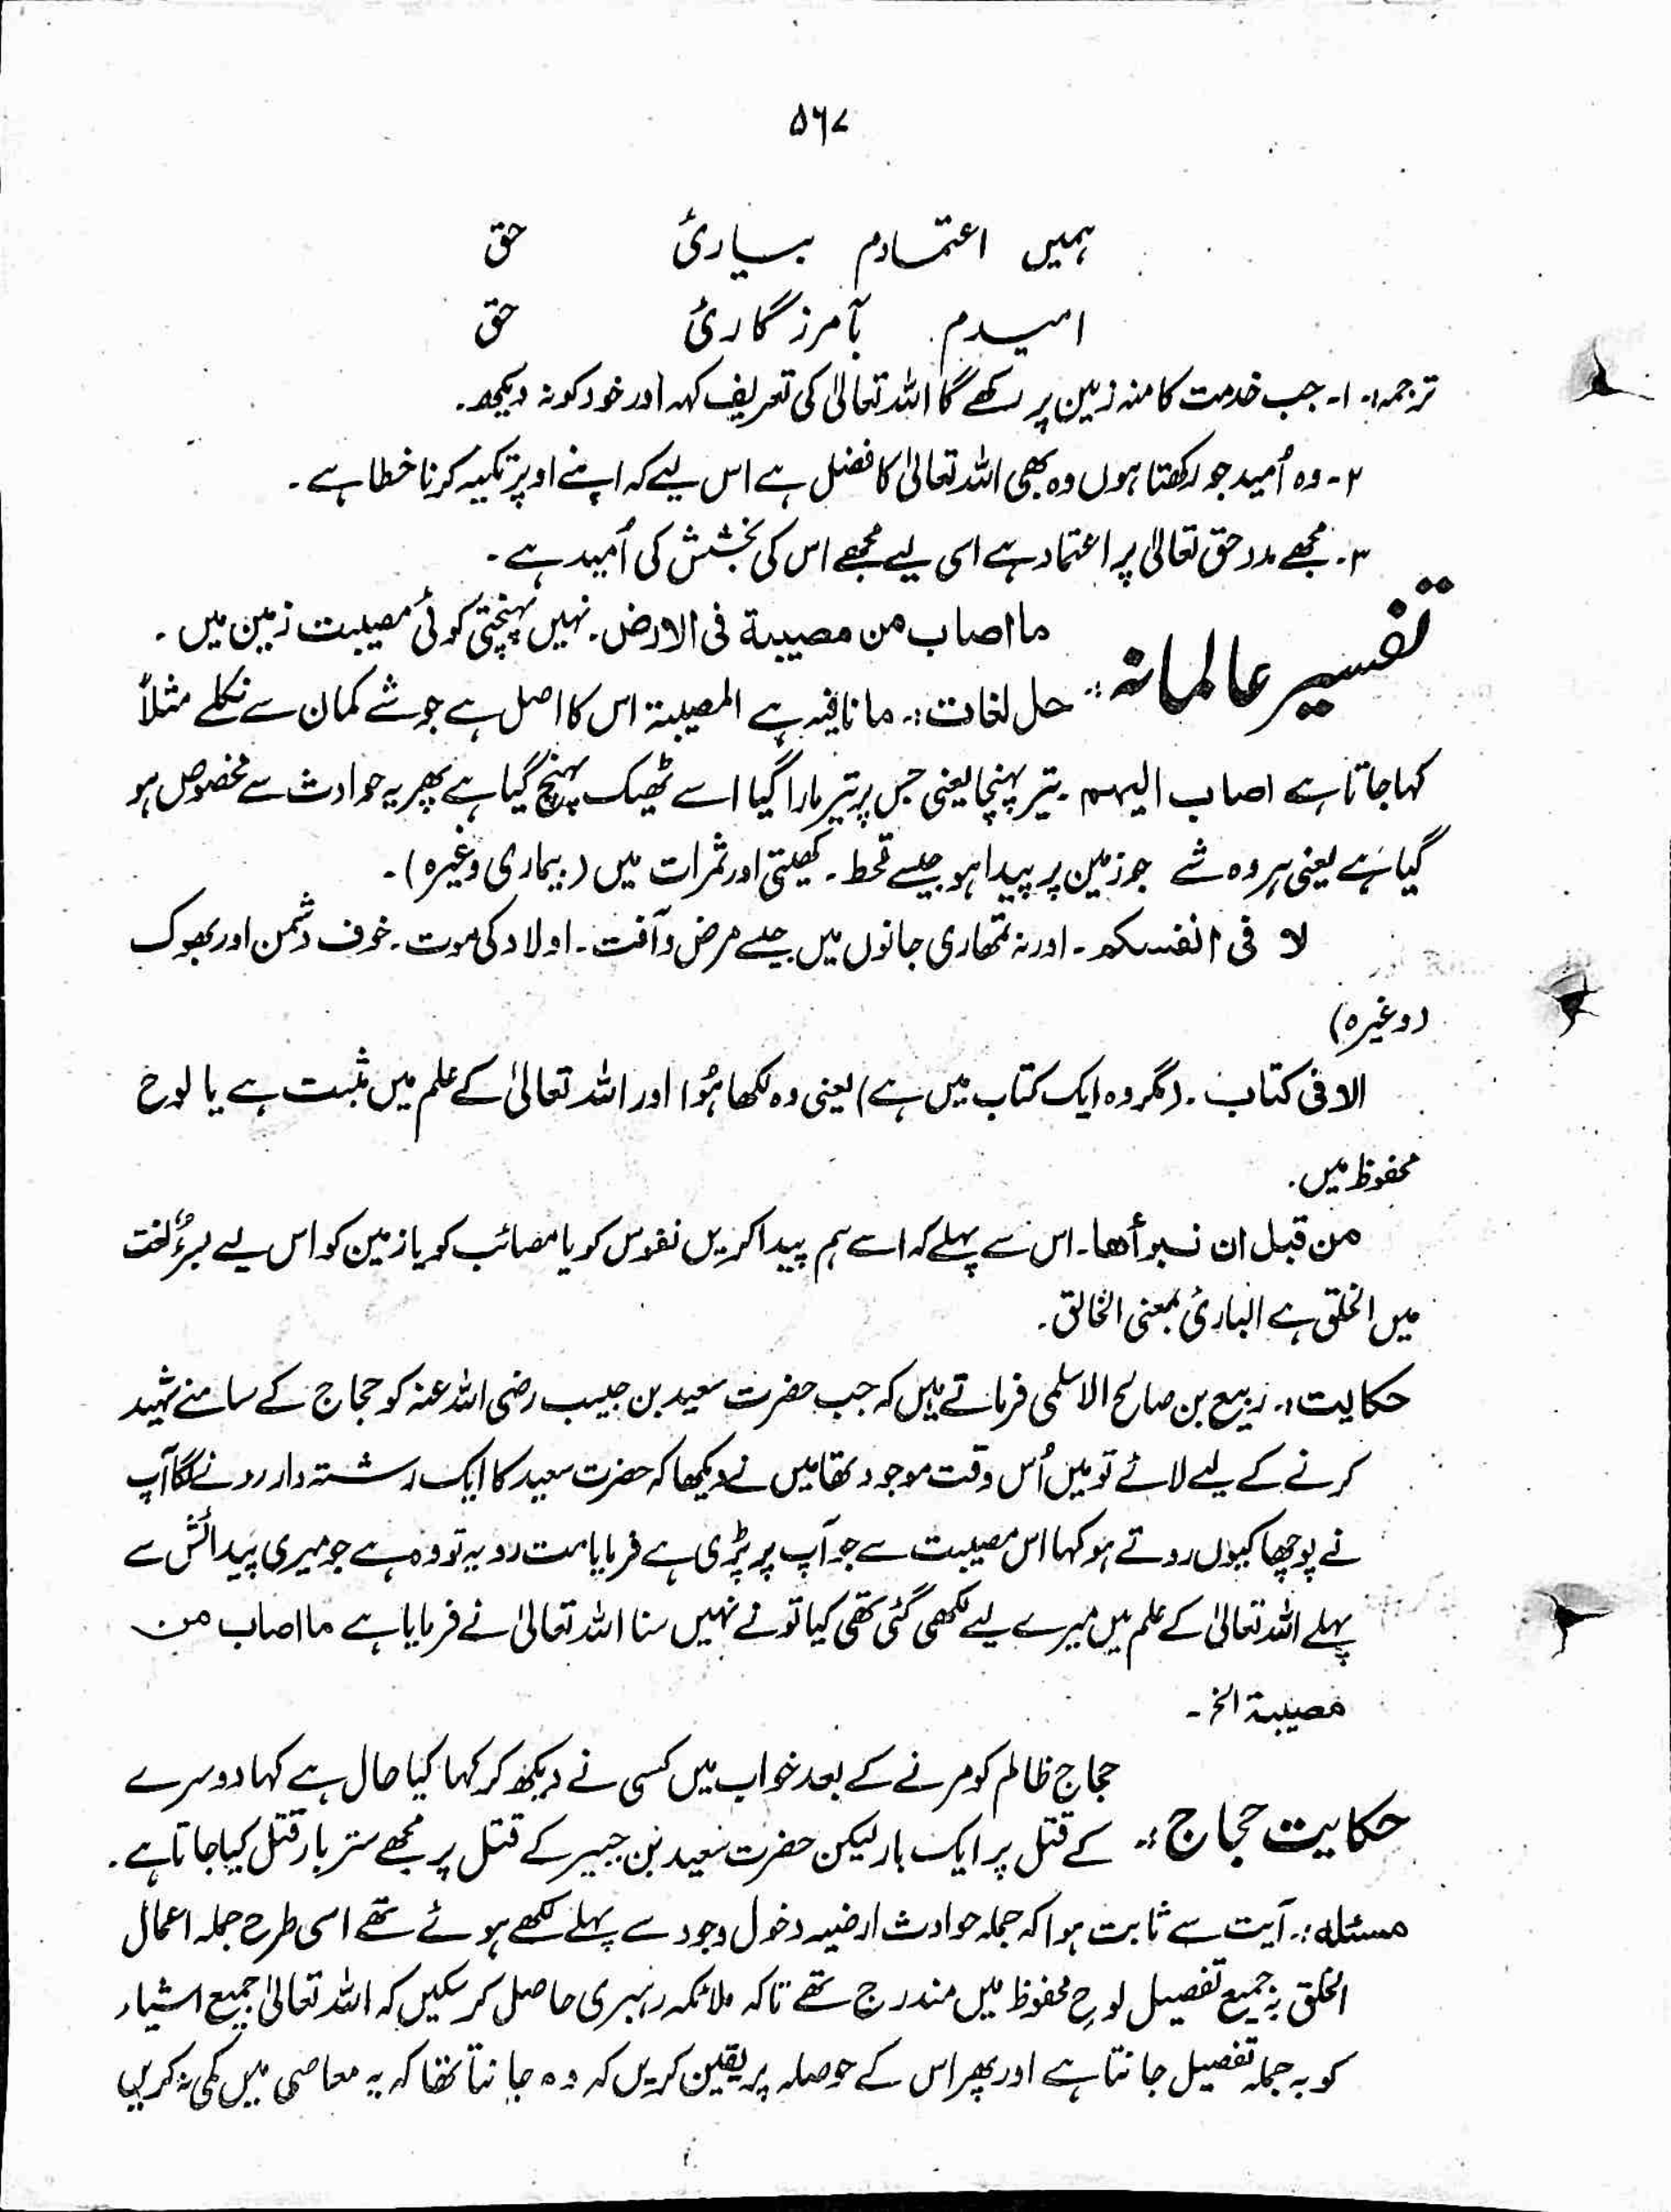 ۵۶۷
ہمیں اعتمادم بسیاریٔ حق
امیدم بآمرزگاریٔ حق
ترجمہ:۔ ۱۔ جب خدمت کا منہ زمین پر رکھے گا اللہ تعالیٰ کی تعریف کہہ اور خود کو نہ دیکھ۔
۲۔ وہ اُمید جو رکھتا ہوں وہ بھی اللہ تعالیٰ کا فضل ہے اس لیے کہ اپنے اوپر تکیہ کرنا خطا ہے۔
۳۔ مجھے مدد حق تعالیٰ پر اعتماد ہے اسی لیے مجھے اس کی بخشش کی اُمید ہے۔
ما اصاب من مصیبة فی الارض۔ نہیں پہنچتی کوئی مصیبت زمین میں۔
تفسیر عالمانہ:۔ حل لغات:۔ ما نافیہ ہے المصیبة اس کا اصل ہے جو شے کمان سے نکلے مثلاً
کہا جاتا ہے اصاب الیہم۔ تیر پہنچا یعنی جس پر تیر مارا گیا اسے ٹھیک پہنچ گیا ہے پھر یہ حوادث سے مخصوص ہو
گیا ہے یعنی ہر وہ شے جو زمین پر پیدا ہو جیسے قحط۔ کھیتی اور ثمرات میں (بیماری وغیرہ)۔
لا فی انفسکم۔ اور نہ تمہاری جانوں میں جیسے مرض و آفت۔ اولاد کی موت۔ خوف دشمن اور بھوک
(وغیرہ)
الا فی کتاب۔ (مگر وہ ایک کتاب میں ہے) یعنی وہ لکھا ہُوا اور اللہ تعالیٰ کے علم میں مثبت ہے یا لوح
محفوظ میں۔
من قبل ان نبرأھا۔ اس سے پہلے کہ اسے ہم پیدا کریں نفوس کو یا مصائب کو یا زمین کو اس لیے برءُ لغت
میں الخلق ہے الباریٔ بمعنی الخالق۔
حکایت:۔ ربیع بن صالح الاسلمی فرماتے ہیں کہ جب حضرت سعید بن جبیب رضی اللہ عنہ کو حجاج کے سامنے شہید
کرنے کے لیے لائے تو میں اُس وقت موجود تھا میں نے دیکھا کہ حضرت سعید کا ایک رشتہ دار رونے لگا آپ
نے پوچھا کیوں روتے ہو کہا اس مصیبت سے جو آپ پر پڑی ہے فرمایا مت رو یہ تو وہ ہے جو میری پیدائش سے
پہلے اللہ تعالیٰ کے علم میں میرے لیے لکھی گئی تھی کیا تو نے نہیں سنا اللہ تعالیٰ نے فرمایا ہے ما اصاب من
مصیبة الخ۔
حجاج ظالم کو مرنے کے بعد خواب میں کسی نے دیکھ کر کہا کیا حال ہے کہا دوسرے
حکایت حجاج:۔ کے قتل پر ایک بار لیکن حضرت سعید بن جبیر کے قتل پر مجھے ستر بار قتل کیا جاتا ہے۔
مسئلہ:۔ آیت سے ثابت ہوا کہ جملہ حوادث ارضیہ دخول وجود سے پہلے لکھے ہوئے تھے اسی طرح جملہ اعمال
الخلق بہ جمیع تفصیل لوحِ محفوظ میں مندرج تھے تاکہ ملائکہ رہبری حاصل کر سکیں کہ اللہ تعالیٰ جمیع اشیاء
کو بہ جملہ تفصیل جانتا ہے اور پھر اس کے حوصلہ پر یقین کریں کہ وہ جانتا تھا کہ یہ معاصی میں کمی نہ کریں